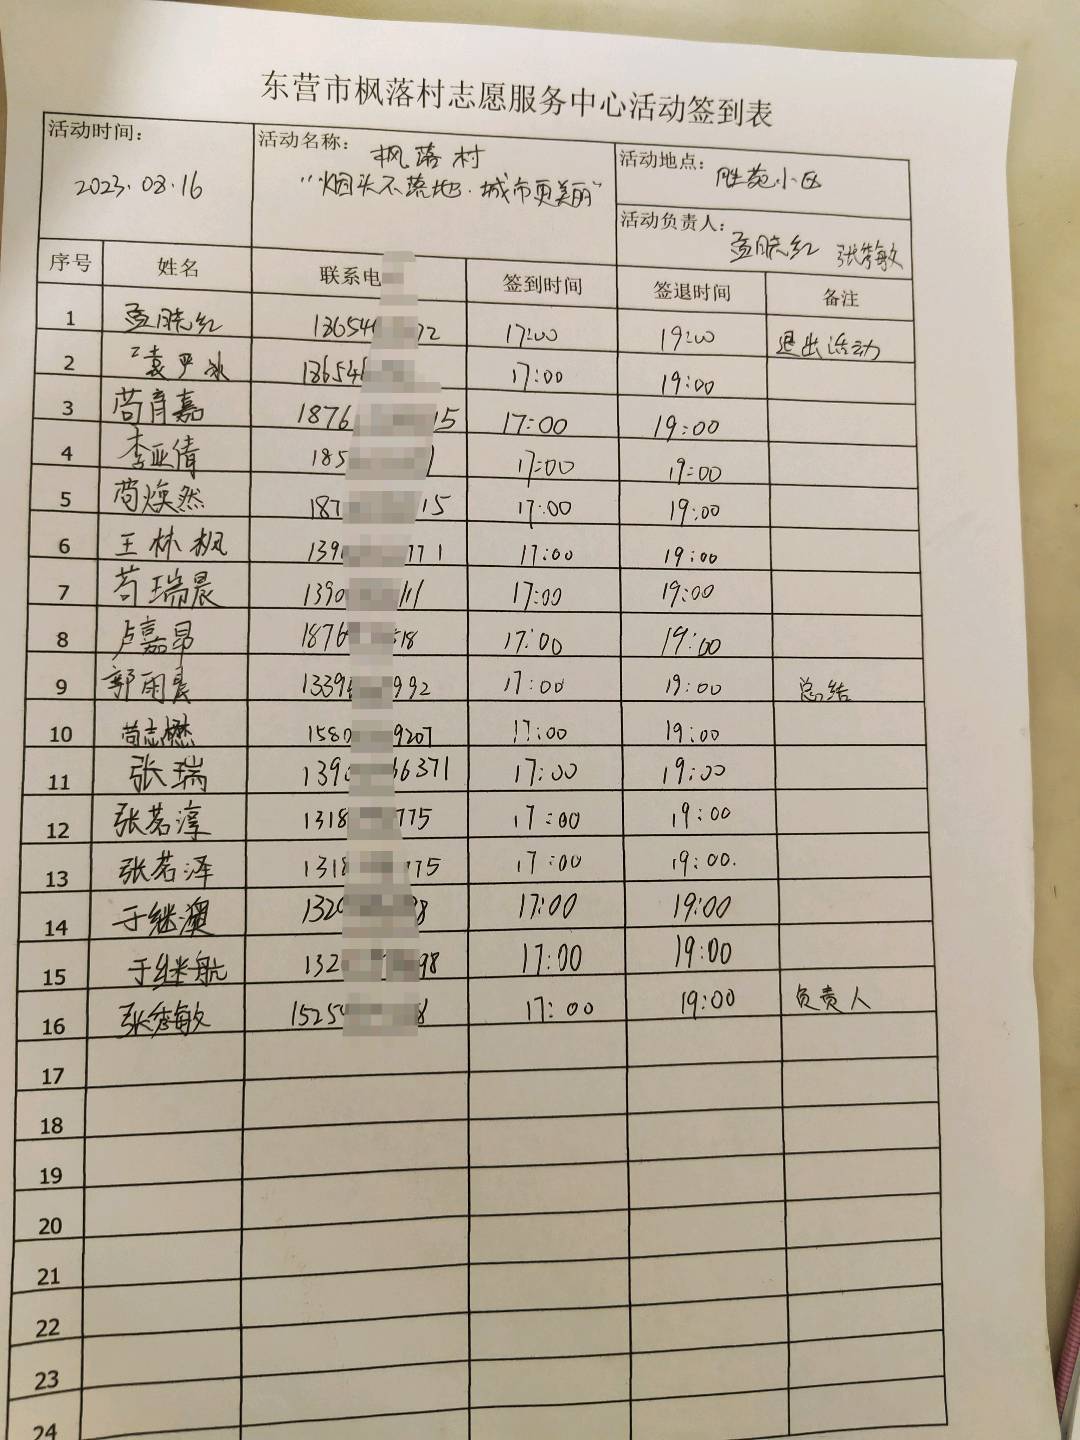 东营市枫落村志愿服务中心活动签到表
活动时间: 2023.08.16
活动名称: 枫落村
"烟头不落地·城市更美丽"
活动地点: 胜苑小区
活动负责人: 孟晓红 张秀敏
序号 姓名 联系电 签到时间 签退时间 备注
1 孟晓红 13654 72 17:00 19:00 退出活动
2 袁严冰 13654 17:00 19:00
3 苟育嘉 1876 15 17:00 19:00
4 李亚倩 185 17:00 19:00
5 苟焕然 187 15 17:00 19:00
6 王林枫 139 771 17:00 19:00
7 苟瑞晨 1390 111 17:00 19:00
8 卢嘉昂 1876 18 17:00 19:00
9 郭雨晨 1339 992 17:00 19:00 总结
10 苟志懋 1580 9207 17:00 19:00
11 张瑞 1390 66371 17:00 19:00
12 张茗淳 1318 775 17:00 19:00
13 张茗泽 1318 75 17:00 19:00.
14 于继澳 1320 98 17:00 19:00
15 于继航 132 98 17:00 19:00
16 张秀敏 1525 8 17:00 19:00 负责人
17
18
19
20
21
22
23
24